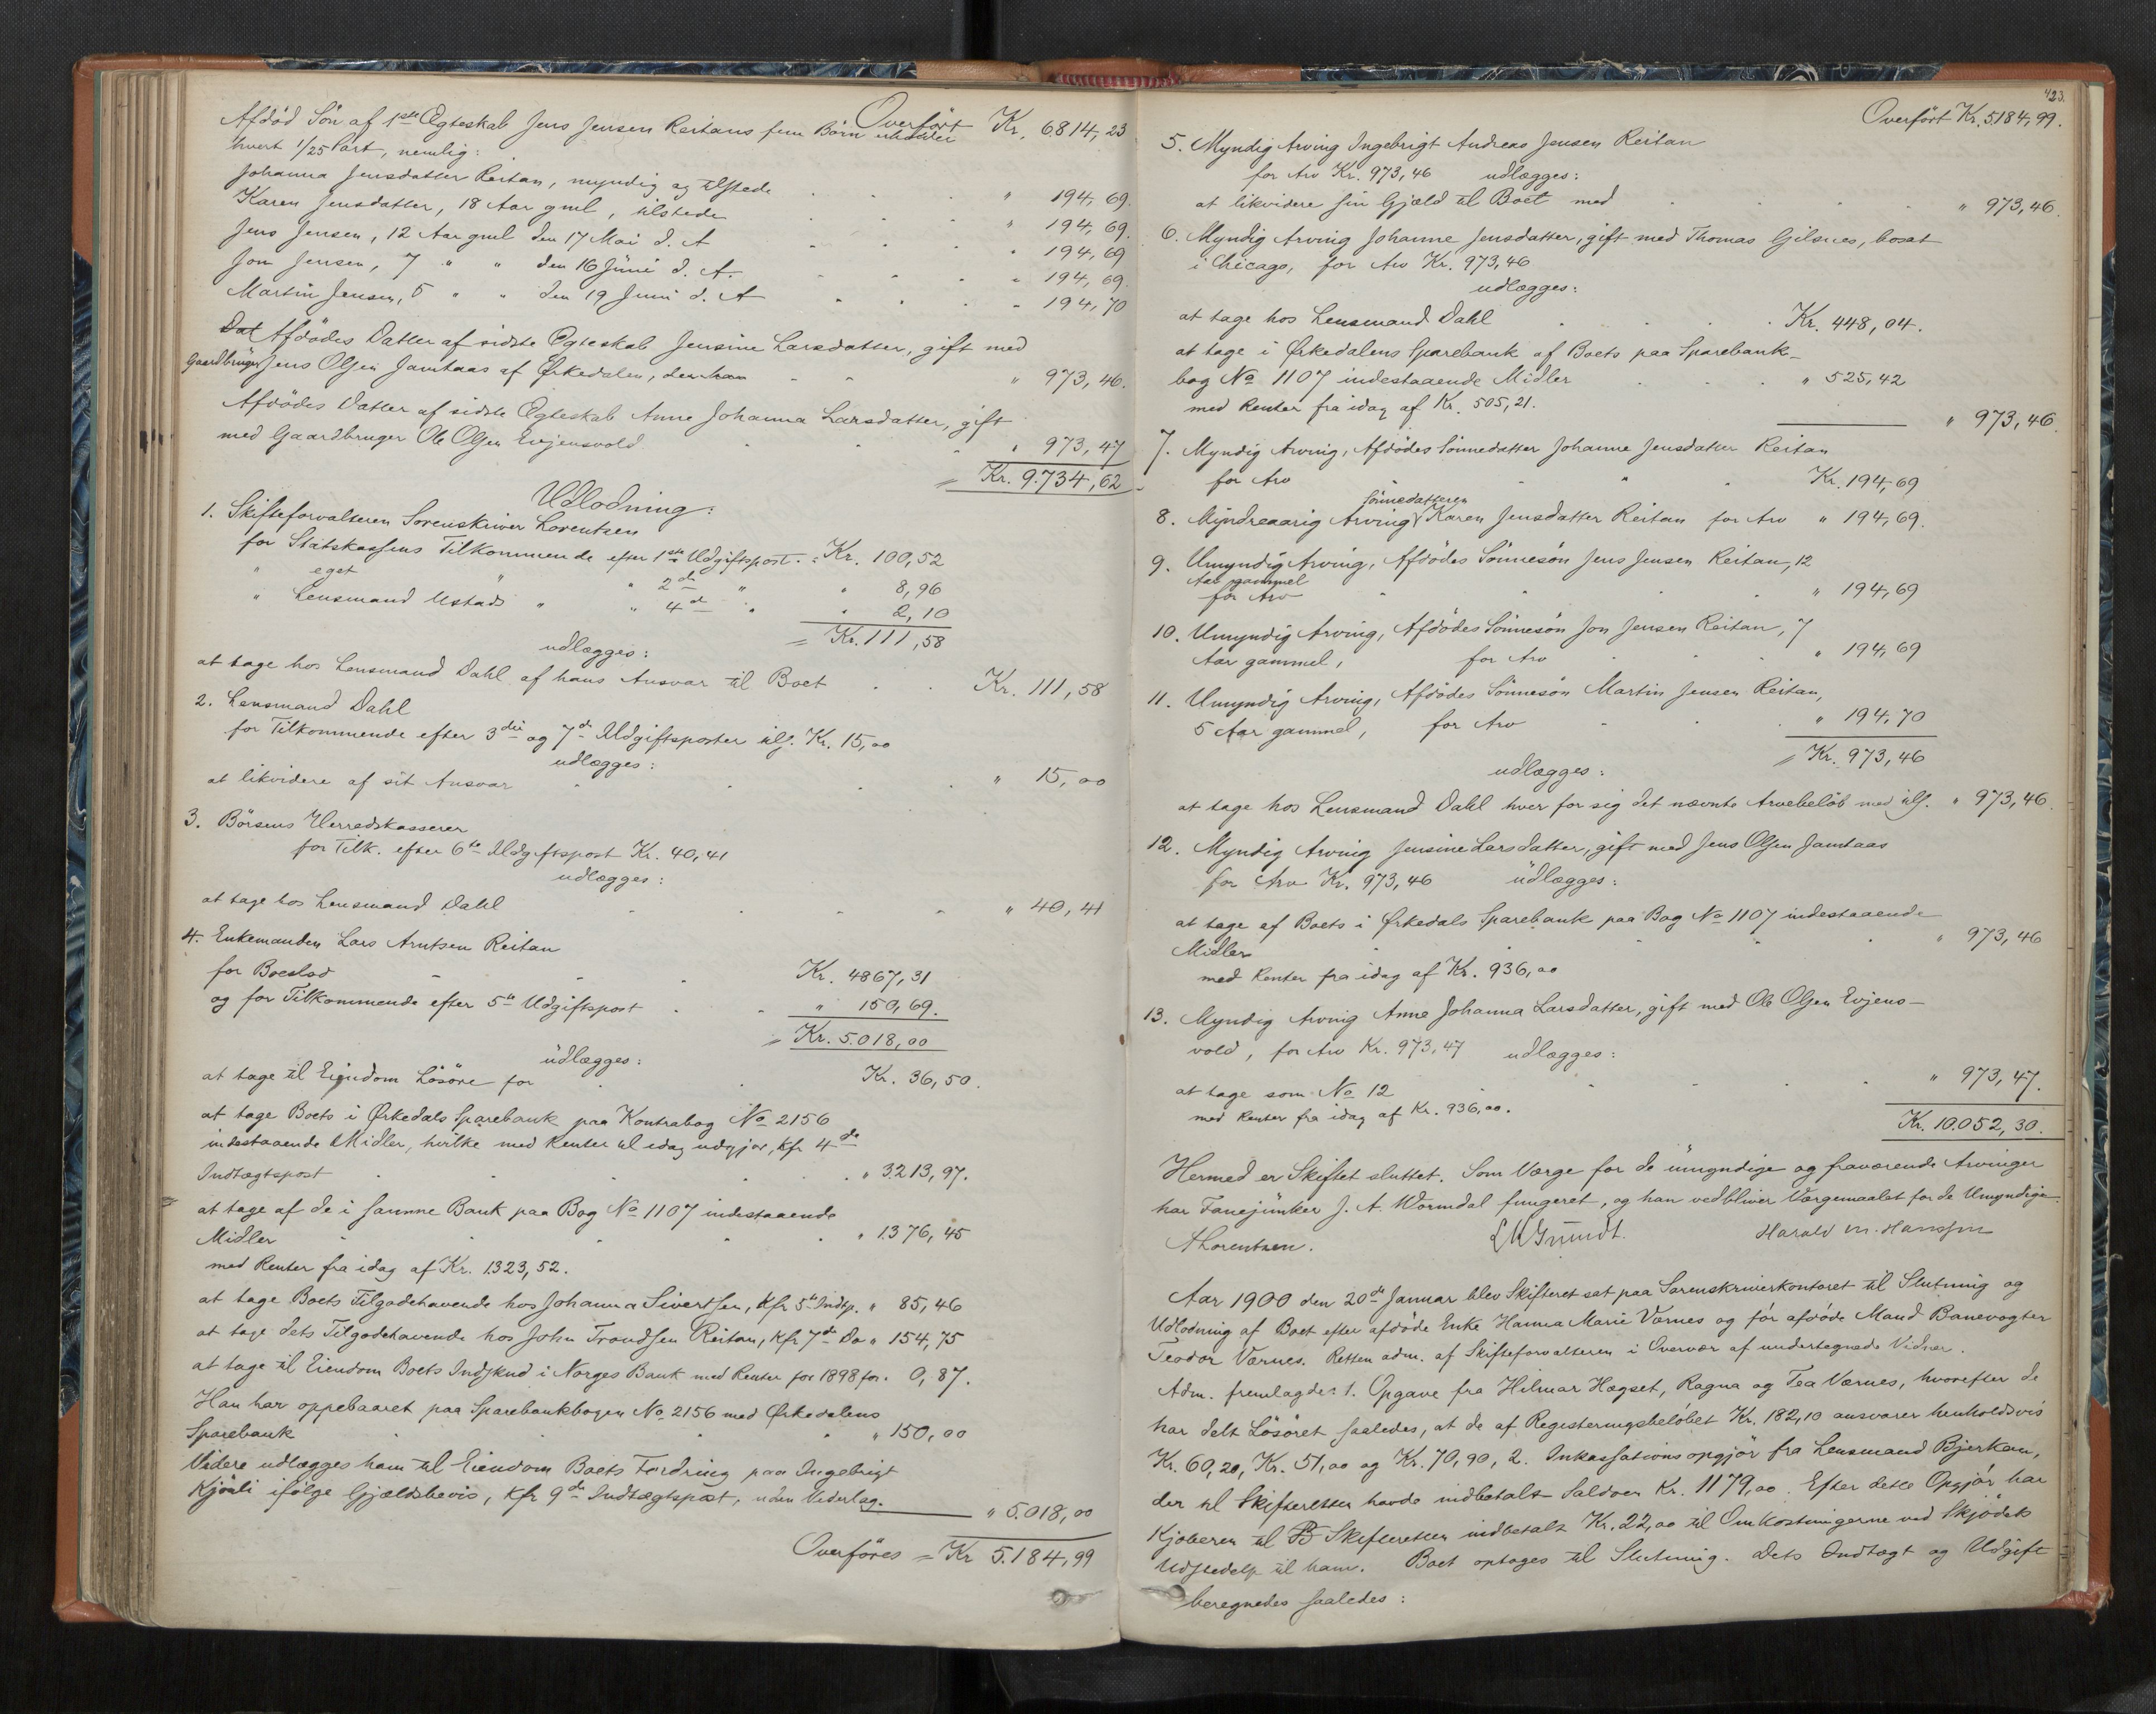 Overført Kr. 6814,23
Afdød Søn af 1ste Ægteskab Jens Jensen Reitans fem Børn
hvert 1/25 Part, nemlig:
Johanna Jensdatter Reitan, myndig og tilstede " 194,69.
Karen Jensdatter, 18 Aar gml, tilstede " 194,69.
Jens Jensen, 12 Aar gml den 17 Mai d. A " 194,69
Jon Jensen, 7 " " den 16 Juni d. A. " 194,69.
Martin Jensen, 5 " " den 19 Juni d. A " 194,70
Dat Afdødes Datter af sidste Ægteskab Jensine Larsdatter, gift med
Gaardbruger Jens Olsen Jamtaas af Ørkedalen, " 973,46.
Afdødes Datter af sidste Ægteskab Anne Johanna Larsdatter, gift
med Gaardbruger Ole Olsen Evjensvold " 973,47
= Kr. 9.734,62
Udlodning:
1. Skifteforvalteren Sorenskriver Lorentsen
for Statskassens Tilkommende efter 1ste Udgiftspost . . Kr. 100,52
" eget " " 2de " " 8,96
" Lensmand Ustads " " 4de " " 2,10
= Kr. 111,58
udlægges:
at tage hos Lensmand Dahl af hans Ansvar til Boet . . Kr. 111,58
2. Lensmand Dahl
for Tilkommende efter 3die og 7de Udgiftsposter tils. Kr. 15,00
udlægges:
at likvidere af sit Ansvar " 15,00
3. Børsens Herredskasserer
for Tilk. efter 6te Udgiftspost Kr. 40,41
udlægges:
at tage hos Lensmand Dahl " 40,41
4. Enkemanden Lars Arntsen Reitan
for Boeslod Kr. 4867,31
og for Tilkommende efter 5te Udgiftspost " 150,69.
= Kr. 5.018,00
udlægges:
at tage til Eiendom Løsøre for Kr. 36,50.
at tage Boets i Ørkedals Sparebank paa Kontrabog No 2156
indestaaende Midler, hvilke med Renter til idag udgjør, kfr 4de
Indtægtspost " 3213,97.
at tage af de i samme Bank paa Bog No 1107 indestaaende
Midler " 1.376,45
med Renter fra idag af Kr. 1323,52.
at tage Boets Tilgodehavende hos Johanna Sivertsen, kfr 5te Indtp. " 85,46
at tage dets Tilgodehavende hos John Trondsen Reitan, kfr 7de Do " 154,75
at tage til Eiendom Boets Indskud i Norges Bank med Renter for 1898 for. 0,87.
Han har oppebaaret paa Sparebankbogen No 2156 med Ørkedalens
Sparebank " 150,00
Videre udlægges ham til Eiendom Boets Fordring paa Ingebrigt
Kjøsli ifølge Gjældsbevis, kfr 9de Indtægtspost, uden Vederlag. " 5.018,00
Overføres = Kr 5.184,99
423.
Overført Kr. 5184,99.
5. Myndig Arving Ingebrigt Andreas Jensen Reitan
for Arv Kr. 973,46 udlægges:
at likvidere sin Gjæld til Boet med " 973,46.
6. Myndig Arving Johanne Jensdatter, gift med Thomas Gilsnes, bosat
i Chicago, for Arv Kr. 973,46
udlægges:
at tage hos Lensmand Dahl . Kr. 448,04.
at tage i Ørkedalens Sparebank af Boets paa Sparebank-
bog No 1107 indestaaende Midler " 525,42
med Renter fra idag af Kr. 505,21.
" 973,46.
7. Myndig Arving, Afdødes Sønnedatter Johanne Jensdatter Reitan
for Arv " Kr. 194,69
8. Myndreaarig Arving Sønnedatteren Karen Jensdatter Reitan for Arv " 194,69.
9. Umyndig Arving, Afdødes Sønnesøn Jens Jensen Reitan, 12
Aar gammel
for Arv " 194,69
10. Umyndig Arving, Afdødes Sønnesøn Jon Jensen Reitan, 7
Aar gammel, for Arv " 194,69
11. Umyndig Arving, Afdødes Sønnesøn Martin Jensen Reitan,
5 Aar gammel, for Arv " 194,70
= Kr. 973,46
udlægges:
at tage hos Lensmand Dahl hver for sig det nævnte Arvebeløb med tils. " 973,46.
12. Myndig Arving Jensine Larsdatter, gift med Jens Olsen Jamtaas
for Arv Kr. 973,46 udlægges:
at tage af Boets i Ørkedals Sparebank paa Bog No 1107 indestaaende
Midler " 973,46
med Renter fra idag af Kr. 936,00
13. Myndig Arving Anne Johanna Larsdatter, gift med Ole Olsen Evjens-
vold, for Arv Kr. 973,47 udlægges:
at tage som No 12 " 973,47.
med Renter fra idag af Kr. 936,00.
Kr. 10.052,30.
Hermed er Skiftet sluttet. Som Værge for de umyndige og fraværende Arvinger
har Fanejunker J. A. Wormdal fungeret, og han vedbliver Værgemaalet for de Umyndige.
ALorentzen. Harald M. Hanssen
Aar 1900 den 20de Januar blev Skifteret sat paa Sorenskriverkontoret til Slutning og
Udlodning af Boet efter afdøde Enke Hanna Marie Værnes og før afdøde Mand Banevogter
Teodor Værnes. Retten adm. af Skifteforvalteren i Overvær af undertegnede Vidner.
Adm. fremlagde: 1. Opgave fra Hilmar Hagset, Ragna og Tea Værnes, hvorefter de
har delt Løsøret saaledes, at de af Registeringsbeløbet Kr. 182,10 ansvarer henholdsvis
Kr. 60,20, Kr. 51,00 og Kr. 70,90, 2. Inkassationsopgjør fra Lensmand Bjerkan,
der til Skifteretten havde indbetalt Saldoen Kr. 1179,00. Efter dette Opgjør har
Kjøberen til B Skifteretten indbetalt Kr. 22,00 til Omkostningerne ved Skjødets
Udstedelse til ham. Boet optages til Slutning. Dets Indtægt og Udgift
beregnedes saaledes: